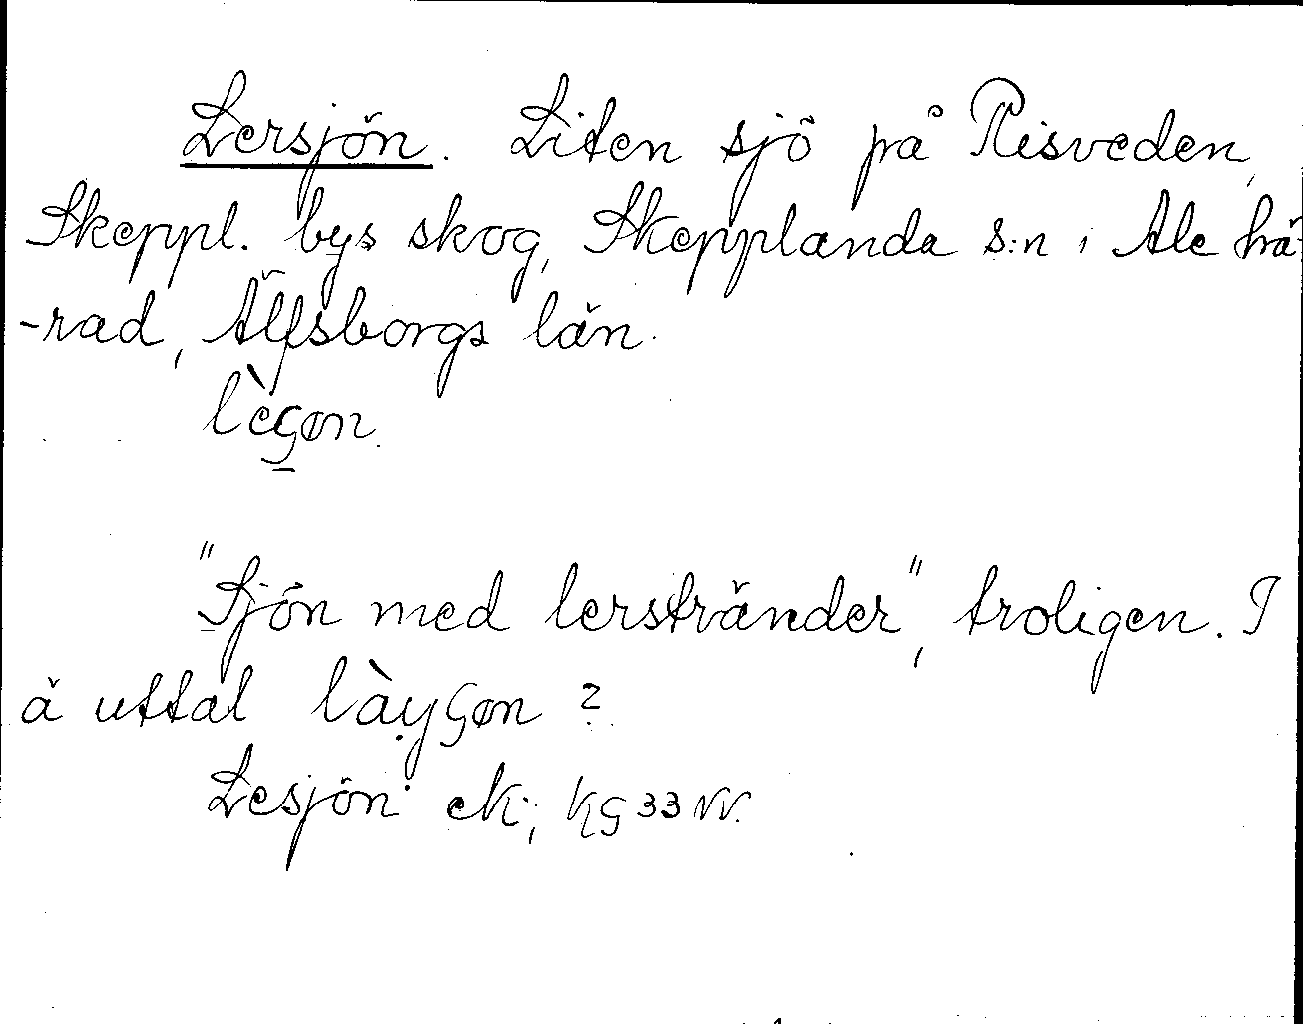 Lersjön. Liten sjö på Risveden,
Skeppl. bys skog, Skepplanda s:n i Ale hä-
-rad, Älfsborgs län.
lèçøn.
"Sjön med lerstränder", troligen. I
ä uttal
Lesjön ek.; KG 33 W.